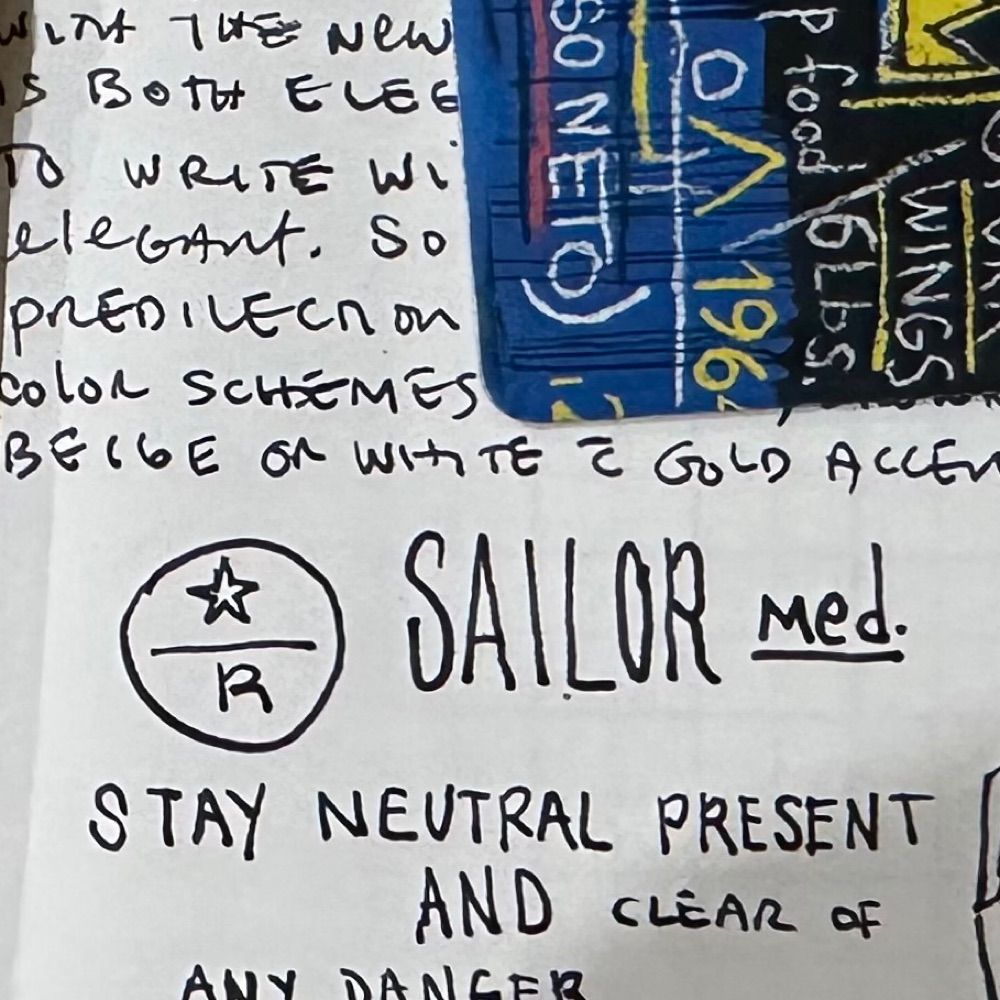 WITH THE NEW
IS BOTH ELEG
TO WRITE WI
eleGANT. SO
PREDILECTION
COLOR SCHEMES
BEIGE OR WHITE C̄ GOLD ACCEN
SO NETO)
196
P food
6Lbs.
WINGS
R
SAILOR Med.
STAY NEUTRAL PRESENT
AND CLEAR OF
ANY DANGER